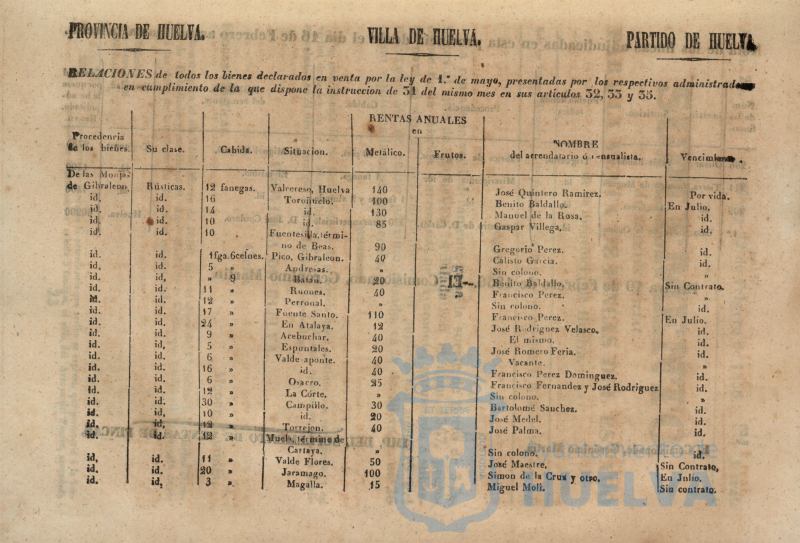 PROVINCIA DE HUELVA. VILLA DE HUELVA. PARTIDO DE HUELVA
RELACIONES de todos los bienes declarados en venta por la ley de 1.º de mayo, presentadas por los respectivos administrad
en cumplimiento de la que dispone la instruccion de 31 del mismo mes en sus articulos 32, 33 y 35.
RENTAS ANUALES
en
Procedencia de los bienes. Su clase. Cabida. Situacion. Metálico. Frutos. NOMBRE del arrendatario ó censualista. Vencimiento.
De las Monjas
de Gibraleon. Rústicas. 12 fanegas. Valcereso, Huelva 140 José Quintero Ramirez. Por vida.
id. id. 16 Torojuelo. 100 Benito Baldallo. En Julio.
id. id. 14 id. 130 Manuel de la Rosa. id.
id. id. 10 id. 85 Gaspar Villega. id.
id. id. 10 Fuentesilla, térmi-
no de Beas. 90 Gregorio Perez. id.
id. id. 1 fga. 6 celnes. Pico, Gibraleon. 40 Calisto Garcia. id.
id. id. 5 » Andresas. » Sin colono. »
id. id. » 9 Batan. 20 Benito Baldallo. Sin Contrato.
id. id. 11 » Ruones. 40 Francisco Perez. »
id. id. 12 » Perronal. » Sin colono. »
id. id. 17 » Fuente Santo. 110 Francisco Perez. En Julio.
id. id. 24 » En Atalaya. 12 José Rodriguez Velasco. id.
id. id. 9 » Acebuchar. 40 El mismo. id.
id. id. 5 » Espontales. 20 José Romero Feria. id.
id. id. 6 » Valde aponte. 40 Vacante. »
id. id. 16 » id. 40 Francisco Perez Dominguez. id.
id. id. 6 » Osarro. 25 Francisco Fernandes y José Rodriguez id.
id. id. 12 » La Córte. » Sin colono. »
id. id. 30 » Campillo. 30 Bartolomé Sanchez. id.
id. id. 10 » id. 20 José Medel. id.
id. id. 12 » Torrejon. 40 José Palma. id.
id. id. 12 » Muela, término de
Cartaya. » Sin colono. id
id. id. 11 » Valde Flores. 50 José Maestre. Sin Contrato,
id. id. 20 » Jaramago. 100 Simon de la Cruz y otro. En Julio.
id. id, 3 » Magalla. 15 Miguel Moli. Sin contrato.
HUELVA